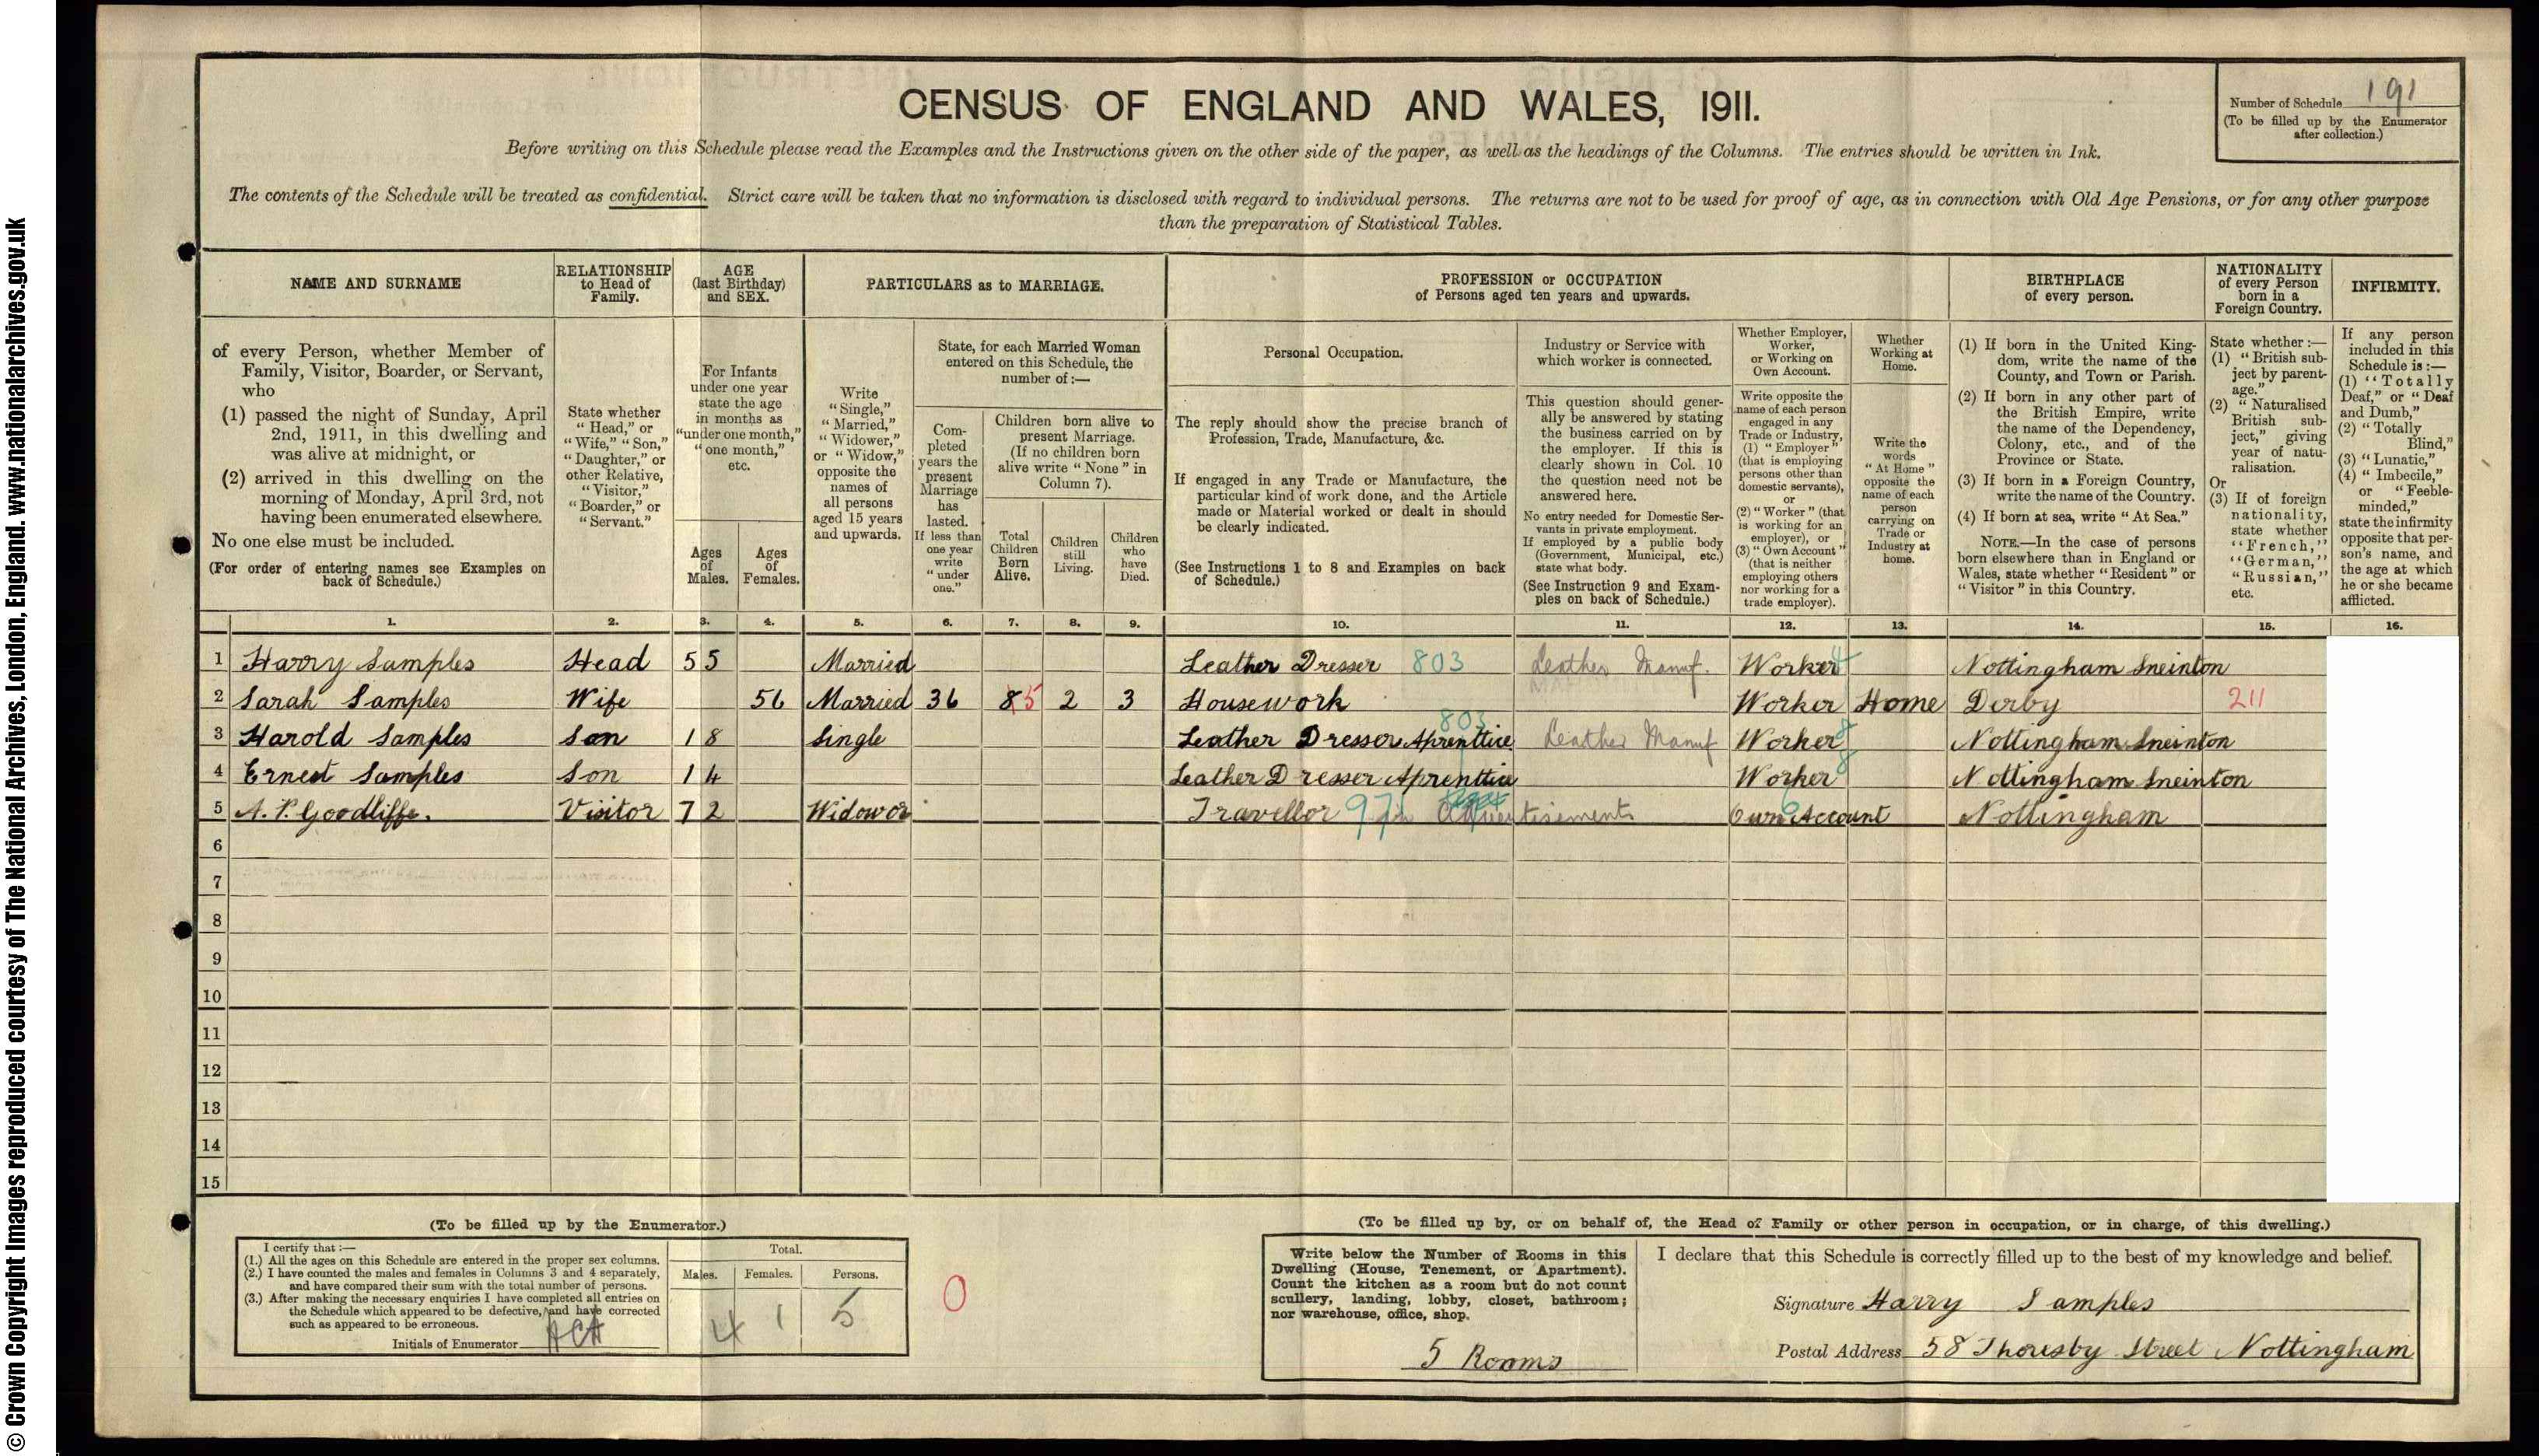 © Crown Copyright Images reproduced courtesy of The National Archives, London, England. www.nationalarchives.gov.uk
CENSUS OF ENGLAND AND WALES, 1911.
Number of Schedule 191
(To be filled up by the Enumerator
after collection.)
Before writing on this Schedule please read the Examples and the Instructions given on the other side of the paper, as well as the headings of the Columns. The entries should be written in Ink.
The contents of the Schedule will be treated as confidential. Strict care will be taken that no information is disclosed with regard to individual persons. The returns are not to be used for proof of age, as in connection with Old Age Pensions, or for any other purpose
than the preparation of Statistical Tables.
NAME AND SURNAME
of every Person, whether Member of
Family, Visitor, Boarder, or Servant,
who
(1) passed the night of Sunday, April
2nd, 1911, in this dwelling and
was alive at midnight, or
(2) arrived in this dwelling on the
morning of Monday, April 3rd, not
having been enumerated elsewhere.
No one else must be included.
(For order of entering names see Examples on
back of Schedule.)
RELATIONSHIP
to Head of
Family.
State whether
"Head," or
"Wife," "Son,"
"Daughter," or
other Relative,
"Visitor,"
"Boarder," or
"Servant."
AGE
(last Birthday)
and SEX.
For Infants
under one year
state the age
in months as
"under one month,"
"one month,"
etc.
Ages
of
Males.
Ages
of
Females.
PARTICULARS as to MARRIAGE.
Write
"Single,"
"Married,"
"Widower,"
or "Widow,"
opposite the
names of
all persons
aged 15 years
and upwards.
State, for each Married Woman
entered on this Schedule, the
number of:—
Com-
pleted
years the
present
Marriage
has
lasted.
If less than
one year
write
"under
one."
Children born alive to
present Marriage.
(If no children born
alive write "None" in
Column 7).
Total
Children
Born
Alive.
Children
still
Living.
Children
who
have
Died.
PROFESSION or OCCUPATION
of Persons aged ten years and upwards.
Personal Occupation.
The reply should show the precise branch of
Profession, Trade, Manufacture, &c.
If engaged in any Trade or Manufacture, the
particular kind of work done, and the Article
made or Material worked or dealt in should
be clearly indicated.
(See Instructions 1 to 8 and Examples on back
of Schedule.)
Industry or Service with
which worker is connected.
This question should gener-
ally be answered by stating
the business carried on by
the employer. If this is
clearly shown in Col. 10
the question need not be
answered here.
No entry needed for Domestic Ser-
vants in private employment.
If employed by a public body
(Government, Municipal, etc.)
state what body.
(See Instruction 9 and Exam-
ples on back of Schedule.)
Whether Employer,
Worker,
or Working on
Own Account.
Write opposite the
name of each person
engaged in any
Trade or Industry,
(1) "Employer"
(that is employing
persons other than
domestic servants),
or
(2) "Worker" (that
is working for an
employer), or
(3) "Own Account"
(that is neither
employing others
nor working for a
trade employer).
Whether
Working at
Home.
Write the
words
"At Home"
opposite the
name of each
person
carrying on
Trade or
Industry at
home.
BIRTHPLACE
of every person.
(1) If born in the United King-
dom, write the name of the
County, and Town or Parish.
(2) If born in any other part of
the British Empire, write
the name of the Dependency,
Colony, etc., and of the
Province or State.
(3) If born in a Foreign Country,
write the name of the Country.
(4) If born at sea, write "At Sea."
NOTE.—In the case of persons
born elsewhere than in England or
Wales, state whether "Resident" or
"Visitor" in this Country.
NATIONALITY
of every Person
born in a
Foreign Country.
State whether :—
(1) "British sub-
ject by parent-
age."
(2) "Naturalised
British sub-
ject," giving
year of natu-
ralisation.
Or
(3) If of foreign
nationality,
state whether
"French,"
"German,"
"Russian,"
etc.
INFIRMITY.
If any person
included in this
Schedule is:—
(1) "Totally
Deaf," or "Deaf
and Dumb,"
(2) "Totally
Blind,"
(3) "Lunatic,"
(4) "Imbecile,"
or "Feeble-
minded,"
state the infirmity
opposite that per-
son's name, and
the age at which
he or she became
afflicted.
1. 2. 3. 4. 5. 6. 7. 8. 9. 10. 11. 12. 13. 14. 15. 16.
1 Harry Samples Head 55 Married Leather Dresser 803 Leather Manuf. Worker Nottingham Sneinton
2 Sarah Samples Wife 56 Married 36 5 2 3 Housework Worker Home Derby 211
3 Harold Samples Son 18 Single Leather Dresser Aprenttice 803 Leather Manuf Worker Nottingham Sneinton
4 Ernest Samples Son 14 Leather Dresser Aprenttice Worker Nottingham Sneinton
5 A. P. Goodliffe. Visitor 72 Widowor Travellor in Advertisements Own Account Nottingham
6
7
8
9
10
11
12
13
14
15
(To be filled up by the Enumerator.)
I certify that :—
(1.) All the ages on this Schedule are entered in the proper sex columns.
(2.) I have counted the males and females in Columns 3 and 4 separately,
and have compared their sum with the total number of persons.
(3.) After making the necessary enquiries I have completed all entries on
the Schedule which appeared to be defective, and have corrected
such as appeared to be erroneous.
Initials of Enumerator ACH
Total.
Males. Females. Persons.
4 1 5
0
(To be filled up by, or on behalf of, the Head of Family or other person in occupation, or in charge, of this dwelling.)
Write below the Number of Rooms in this
Dwelling (House, Tenement, or Apartment).
Count the kitchen as a room but do not count
scullery, landing, lobby, closet, bathroom;
nor warehouse, office, shop.
5 Rooms
I declare that this Schedule is correctly filled up to the best of my knowledge and belief.
Signature Harry Samples
Postal Address 58 Thoresby Street Nottingham